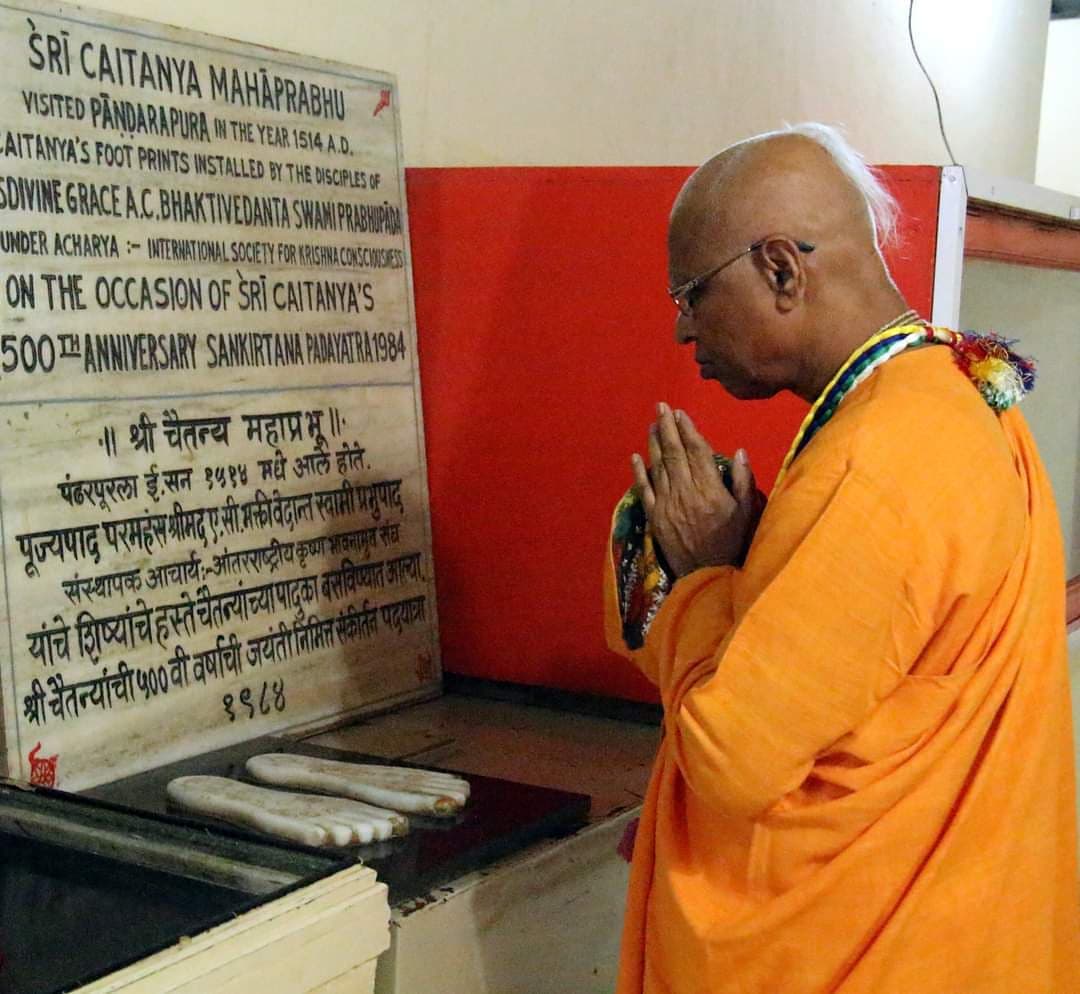 ŚRĪ CAITANYA MAHĀPRABHU
VISITED PĀṆḌARAPURA IN THE YEAR 1514 A.D.
CAITANYA'S FOOT PRINTS INSTALLED BY THE DISCIPLES OF
SDIVINE GRACE A.C. BHAKTIVEDANTA SWAMI PRABHUPĀDA
UNDER ACHARYA :- INTERNATIONAL SOCIETY FOR KRISHNA CONSCIOUSNESS
ON THE OCCASION OF ŚRĪ CAITANYA'S
500TH ANNIVERSARY SANKIRTANA PADAYATRA 1984
॥ श्री चैतन्य महाप्रभू ॥
पंढरपूरला ई.सन १५१४ मधे आले होते.
पूज्यपाद परमहंस श्रीमद् ए.सी.भक्तीवेदान्त स्वामी प्रभुपाद
संस्थापक आचार्य:-आंतरराष्ट्रीय कृष्ण भावनामृत संघ
यांचे शिष्यांचे हस्ते चैतन्यांच्या पादुका बसविण्यात आल्या.
श्री चैतन्यांची ५०० वी वर्षाची जयंती निमित्त संकीर्तन पदयात्रा
१९८४